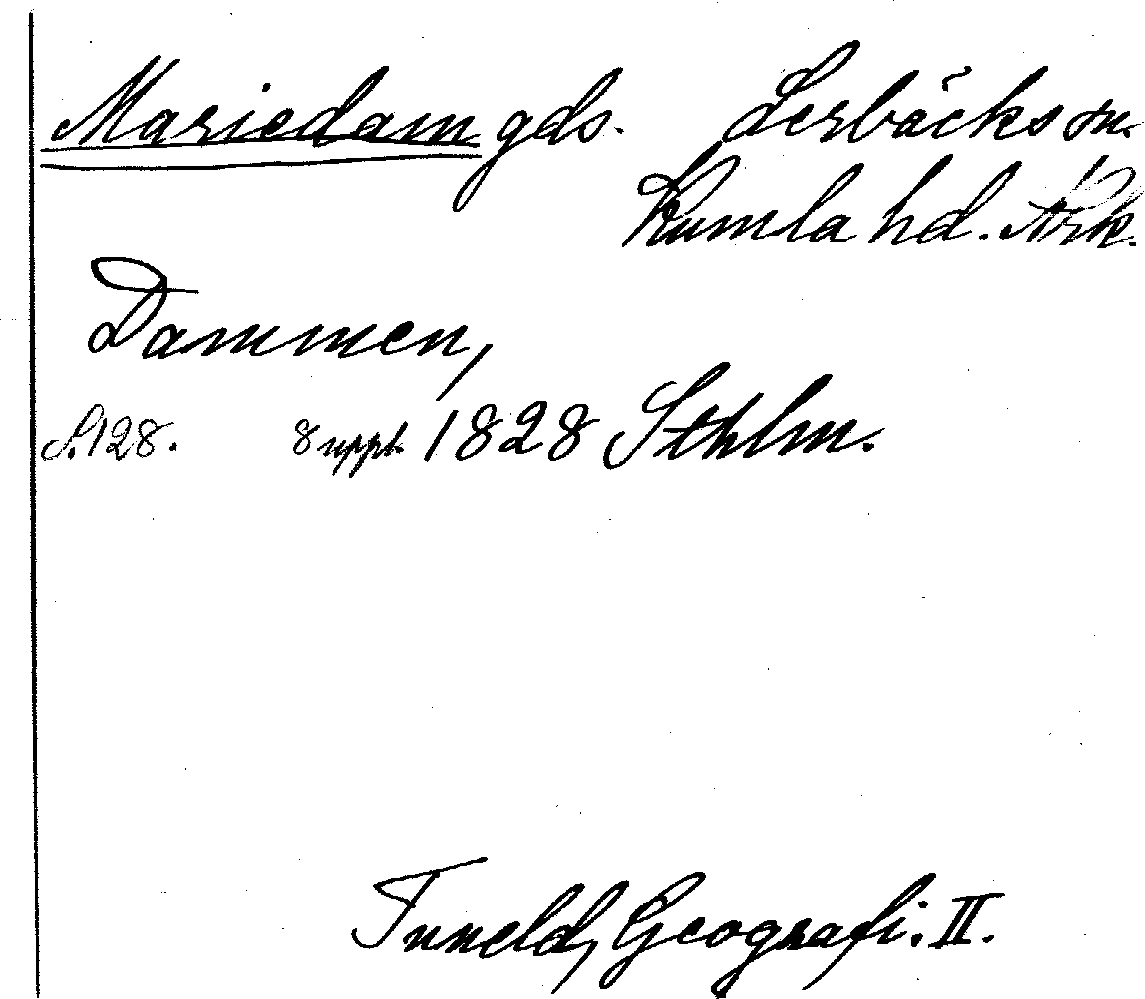 Mariedam gds. Lerbäcks sn.
Kumla hd. Nrk.
Dammen,
S. 128. 8 uppl. 1828 Sthlm.
Tuneld, Geografi. II.